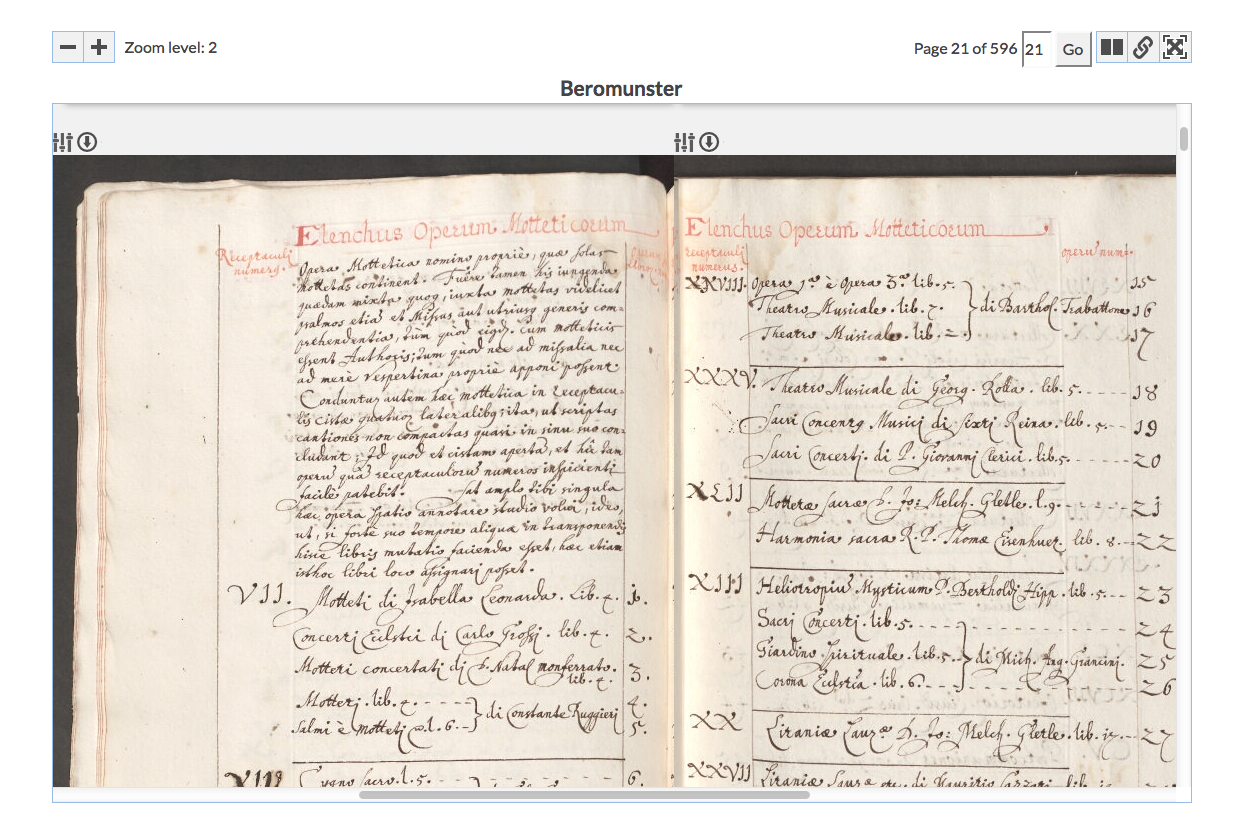 Zoom level: 2
Page 21 of 596 21 Go
Beromunster
Elenchus Operum Motteticorum
Receptaculi
numerg.
Opera Mottetica nomino propriè, quæ solas
mottetas continent. Fuêre tamen his iungenda
quædam mixta quoq, iuxta mottetas videlicet
psalmos etiã et Missas aut utriusq generis com=
prehendentia, tùm quòd eiqdem cum motteticis
essent Authoris; tum quod nec ad missalia nec
ad merè vespertina propriè apponi possent
Conduntur autem hæc mottetica in receptacu=
lis cistæ quatuor lateralibg sita, ut scriptas
cantiones non compactas quasi in sinu suo con=
cludant; Id quod et cistam aperta, et hic tam
operũ quã receptaculorũ numeros inspicienti
facilè patebit. Sat amplo tibi singula
hæc opera spatio annotare studio volui, ideo,
ut, si fortè suo tempore aliqua in transponendis
hisce libris mutatio facienda esset, hæc etiam
isthoc libri loco assignari posset.
VII. Motteti di Isabella Leonarda. Lib. 4. 1.
Concerti Eccl.stici di Carlo Grossi. lib. 4. 2.
Motteti concertati di D. Natal monferrato. 3.
lib. 4.
Motteti. lib. 4. 4.
di Constante Ruggieri
Salmi è motteti 5.
VIII Cygno sacro. l. 5. 6.
Elenchus Operum Motteticorum
receptaculi
numerus.
operũ num:
XXVIII. Opera 1.ª è Opera 3.ª lib. 5. 15
Theatro Musicale. lib. 7. di Barthol. Trabattone 16
Theatro Musicale. lib. 17
XXXV. Theatro Musicale di Georg. Rolla. lib. 5. 18
Sacri Concenty Musici di Sixti Reina. lib. 5. 19
Sacri Concerti. di P. Giovanni Clerici. lib. 5. 20
XLII Mottetæ sacræ D. Jo: Melch. Gletle. l. 9. 21
Harmonia sacra R. P. Thomæ Eisenhuet. lib. 8. 22
XIII Heliotropiũ Mysticum P. Bertholdi Hipp. lib. 5. 23
Sacri Concerti. lib. 5. 24
Giardino spirituale. lib. 5. di Mich. Ang. Grancini. 25
Corona Ecclstica. lib. 6. 26
XX Litaniæ Lauret. D. Jo: Melch. Gletle. lib. 27
XXVII Litaniæ Lauret. etc. di Mauritio Cazzati